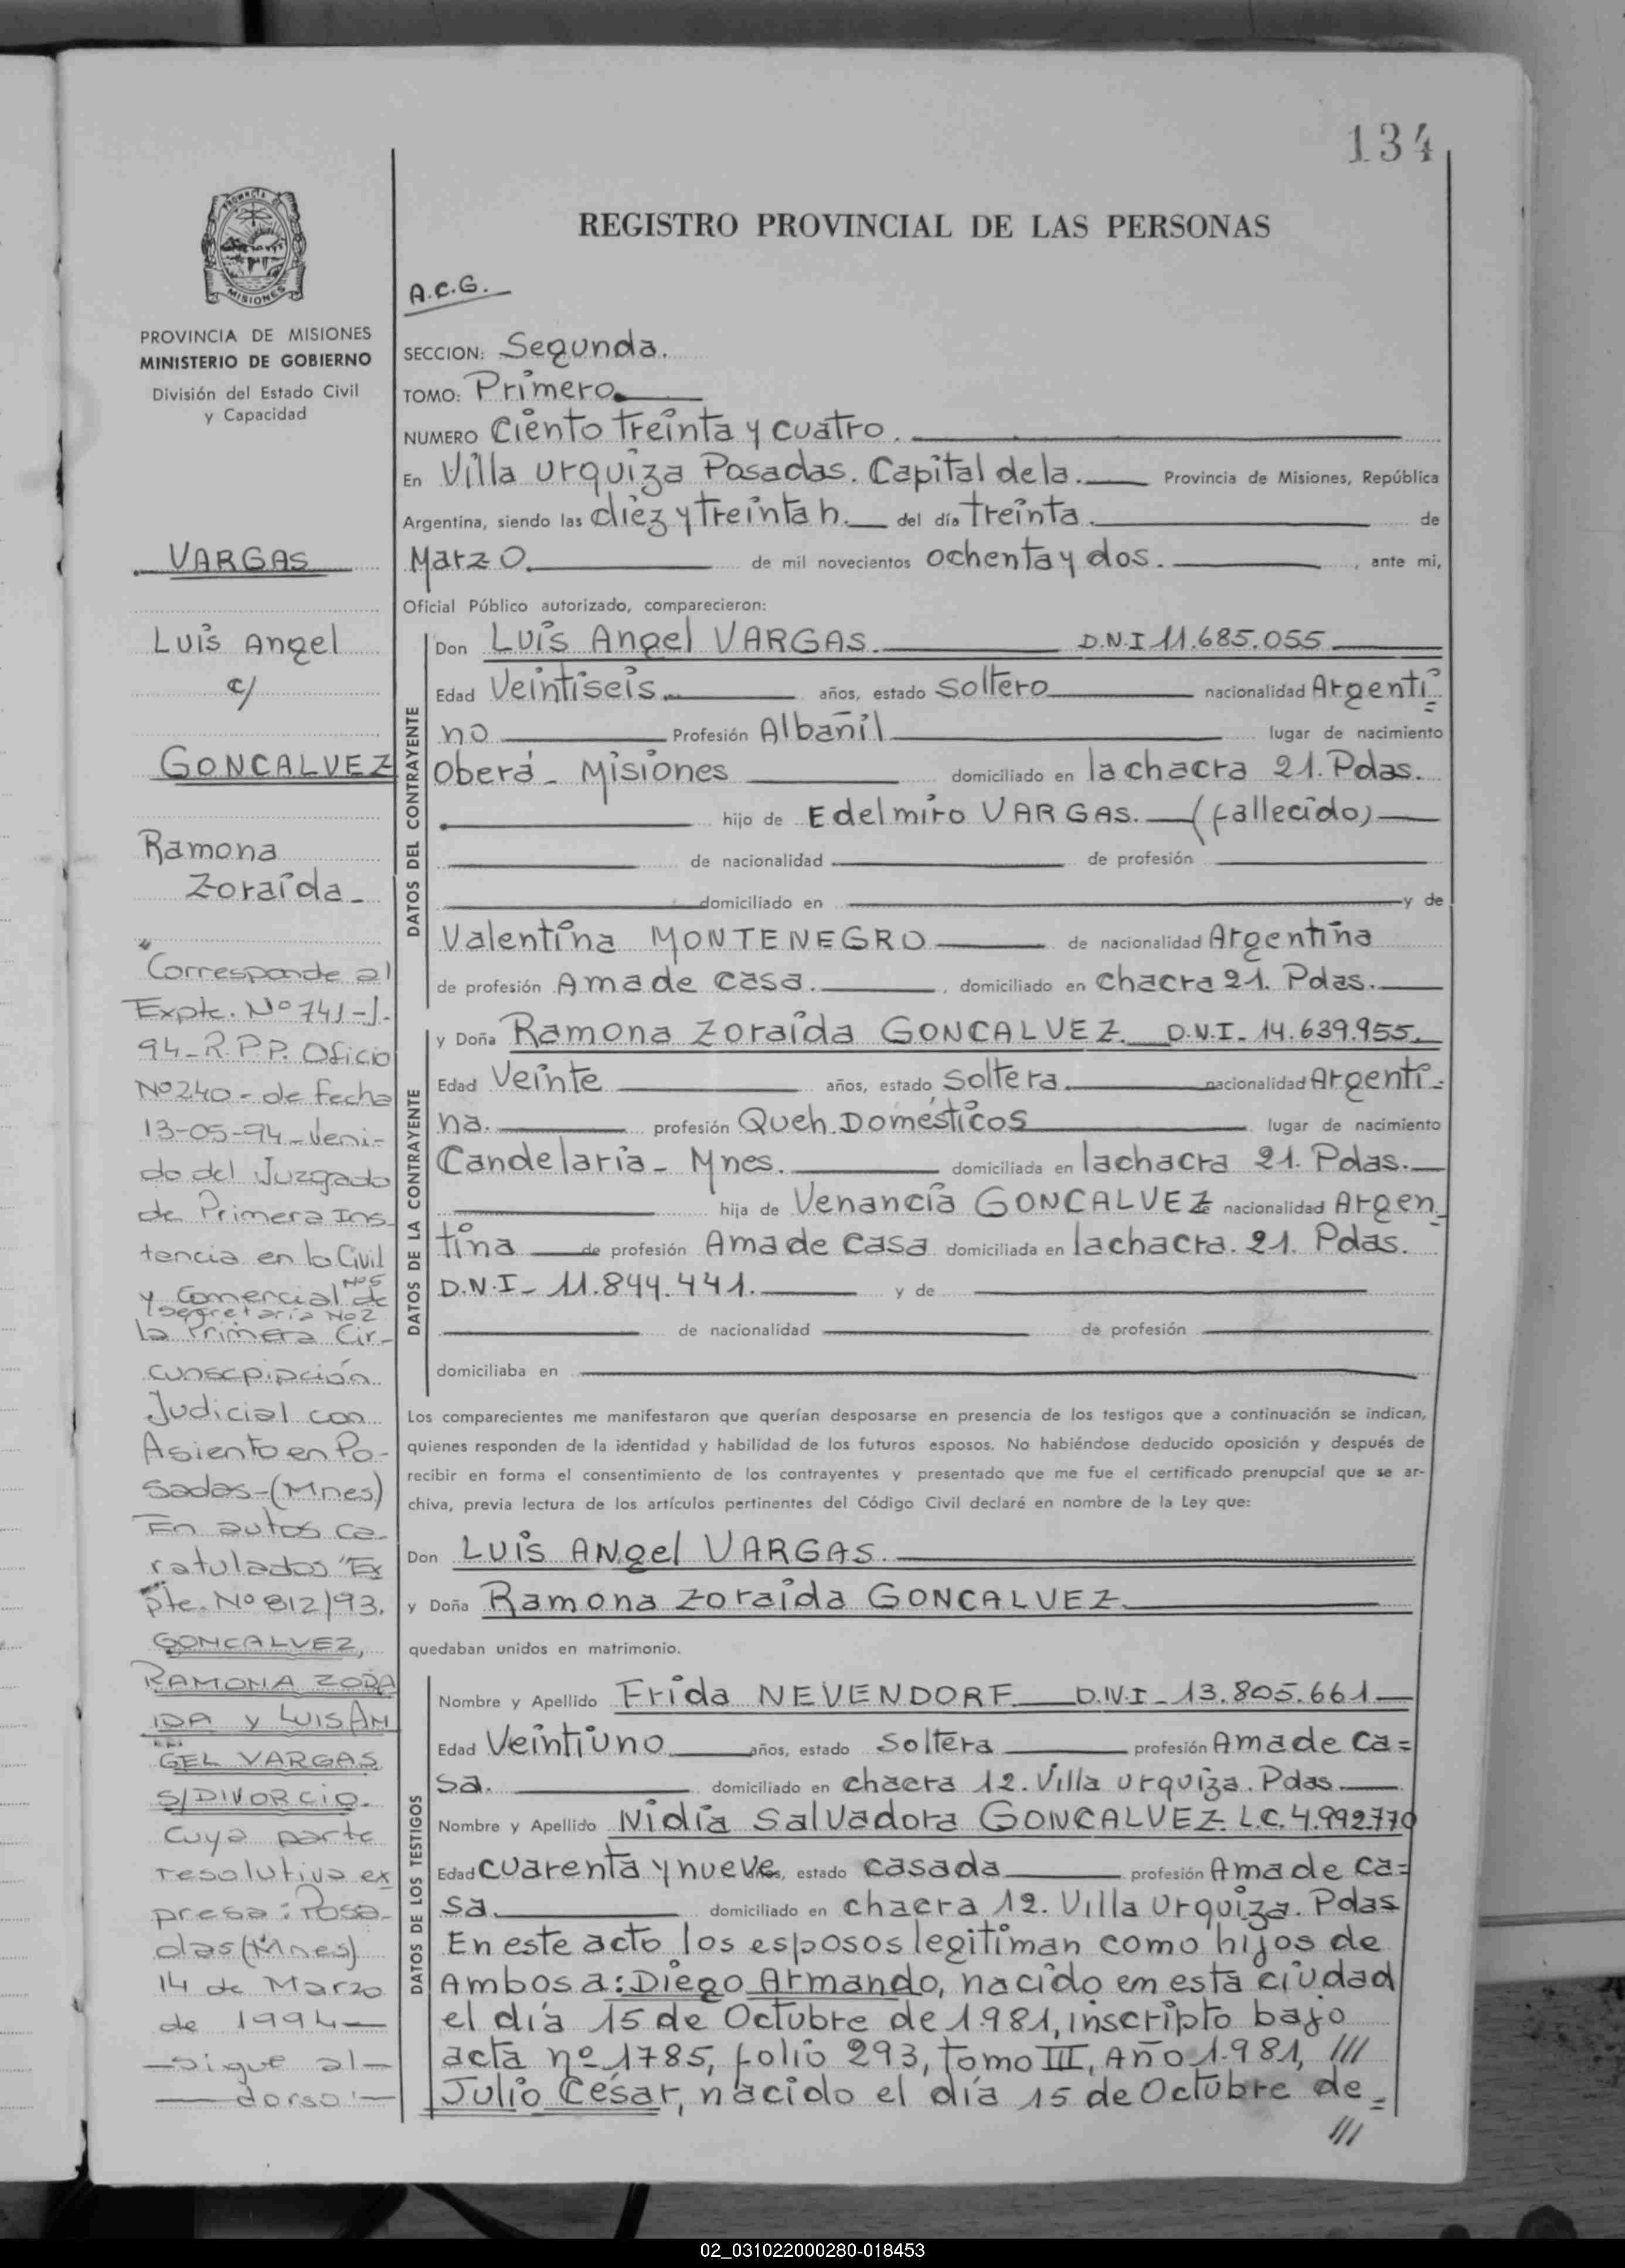 134
REGISTRO PROVINCIAL DE LAS PERSONAS
PROVINCIA DE MISIONES
MINISTERIO DE GOBIERNO
División del Estado Civil
y Capacidad
VARGAS
Luis Angel
c/
GONCALVEZ
Ramona
Zoraida_
"Corresponde al
Expte. Nº 741-J-
94-R.P.P. Oficio
Nº 240- de fecha
13-05-94-Veni-
do del Juzgado
de Primera Ins_
tencia en lo Civil
y Comercial Nº5 de
Segretaría No2
la Primera Cir_
cunscpipción
Judicial con
Asiento en Po-
sadas-(Mnes)
En autos ca-
ratulados "Ex
pte. Nº 812/93.
GONCALVEZ,
RAMONA ZORA
IDA y LUIS AN
GEL VARGAS
S/DIVORCIO.
Cuya parte
resolutiva ex
presa: Posa-
das (Mnes)
14 de Marzo
de 1994—
—sigue al—
—dorso!—
A.C.G.
SECCION: Segunda.
TOMO: Primero.
NUMERO Ciento treinta y cuatro.
En Villa Urquiza Posadas. Capital de la. Provincia de Misiones, República
Argentina, siendo las diez y treinta h. del día treinta. de
Marzo. de mil novecientos ochenta y dos. , ante mi,
Oficial Público autorizado, comparecieron:
DATOS DEL CONTRAYENTE
Don Luis Angel VARGAS. D.N.I 11.685.055
Edad Veintiseis. años, estado soltero nacionalidad Argenti=
no Profesión Albañil lugar de nacimiento
Oberá_ Misiones domiciliado en la chacra 21. Pdas.
hijo de Edelmiro VARGAS. (fallecido)
de nacionalidad de profesión
domiciliado en y de
Valentina MONTENEGRO de nacionalidad Argentina
de profesión Ama de casa. , domiciliado en chacra 21. Pdas.
DATOS DE LA CONTRAYENTE
y Doña Ramona Zoraida GONCALVEZ. D.N.I_ 14.639.955.
Edad Veinte años, estado soltera nacionalidad Argenti=
na. profesión Queh. Domésticos lugar de nacimiento
Candelaria_ Mnes. domiciliada en la chacra 21. Pdas.
hija de Venancia GONCALVEZ de nacionalidad Argen_
tina de profesión Ama de casa domiciliada en la chacra. 21. Pdas.
D.N.I_ 11.844.441. y de
de nacionalidad de profesión
domiciliaba en
Los comparecientes me manifestaron que querían desposarse en presencia de los testigos que a continuación se indican,
quienes responden de la identidad y habilidad de los futuros esposos. No habiéndose deducido oposición y después de
recibir en forma el consentimiento de los contrayentes y presentado que me fue el certificado prenupcial que se ar-
chiva, previa lectura de los artículos pertinentes del Código Civil declaré en nombre de la Ley que:
Don Luis Angel VARGAS.
y Doña Ramona Zoraida GONCALVEZ
quedaban unidos en matrimonio.
DATOS DE LOS TESTIGOS
Nombre y Apellido Frida NEVENDORF D.N.I_ 13.805.661
Edad Veintiuno años, estado soltera profesión Ama de ca=
sa. domiciliado en chacra 12. Villa Urquiza. Pdas.
Nombre y Apellido Nidia Salvadora GONCALVEZ. L.C. 4.992.770
Edad cuarenta y nueve años, estado casada profesión Ama de ca=
sa. domiciliado en chacra 12. Villa Urquiza. Pdas
En este acto los esposos legitiman como hijos de
Ambos a: Diego Armando, nacido en esta ciudad
el día 15 de Octubre de 1.981, inscripto bajo
acta nº 1785, folio 293, tomo III, Año 1.981, ///
Julio César, nacido el día 15 de Octubre de=
///
02_031022000280-018453